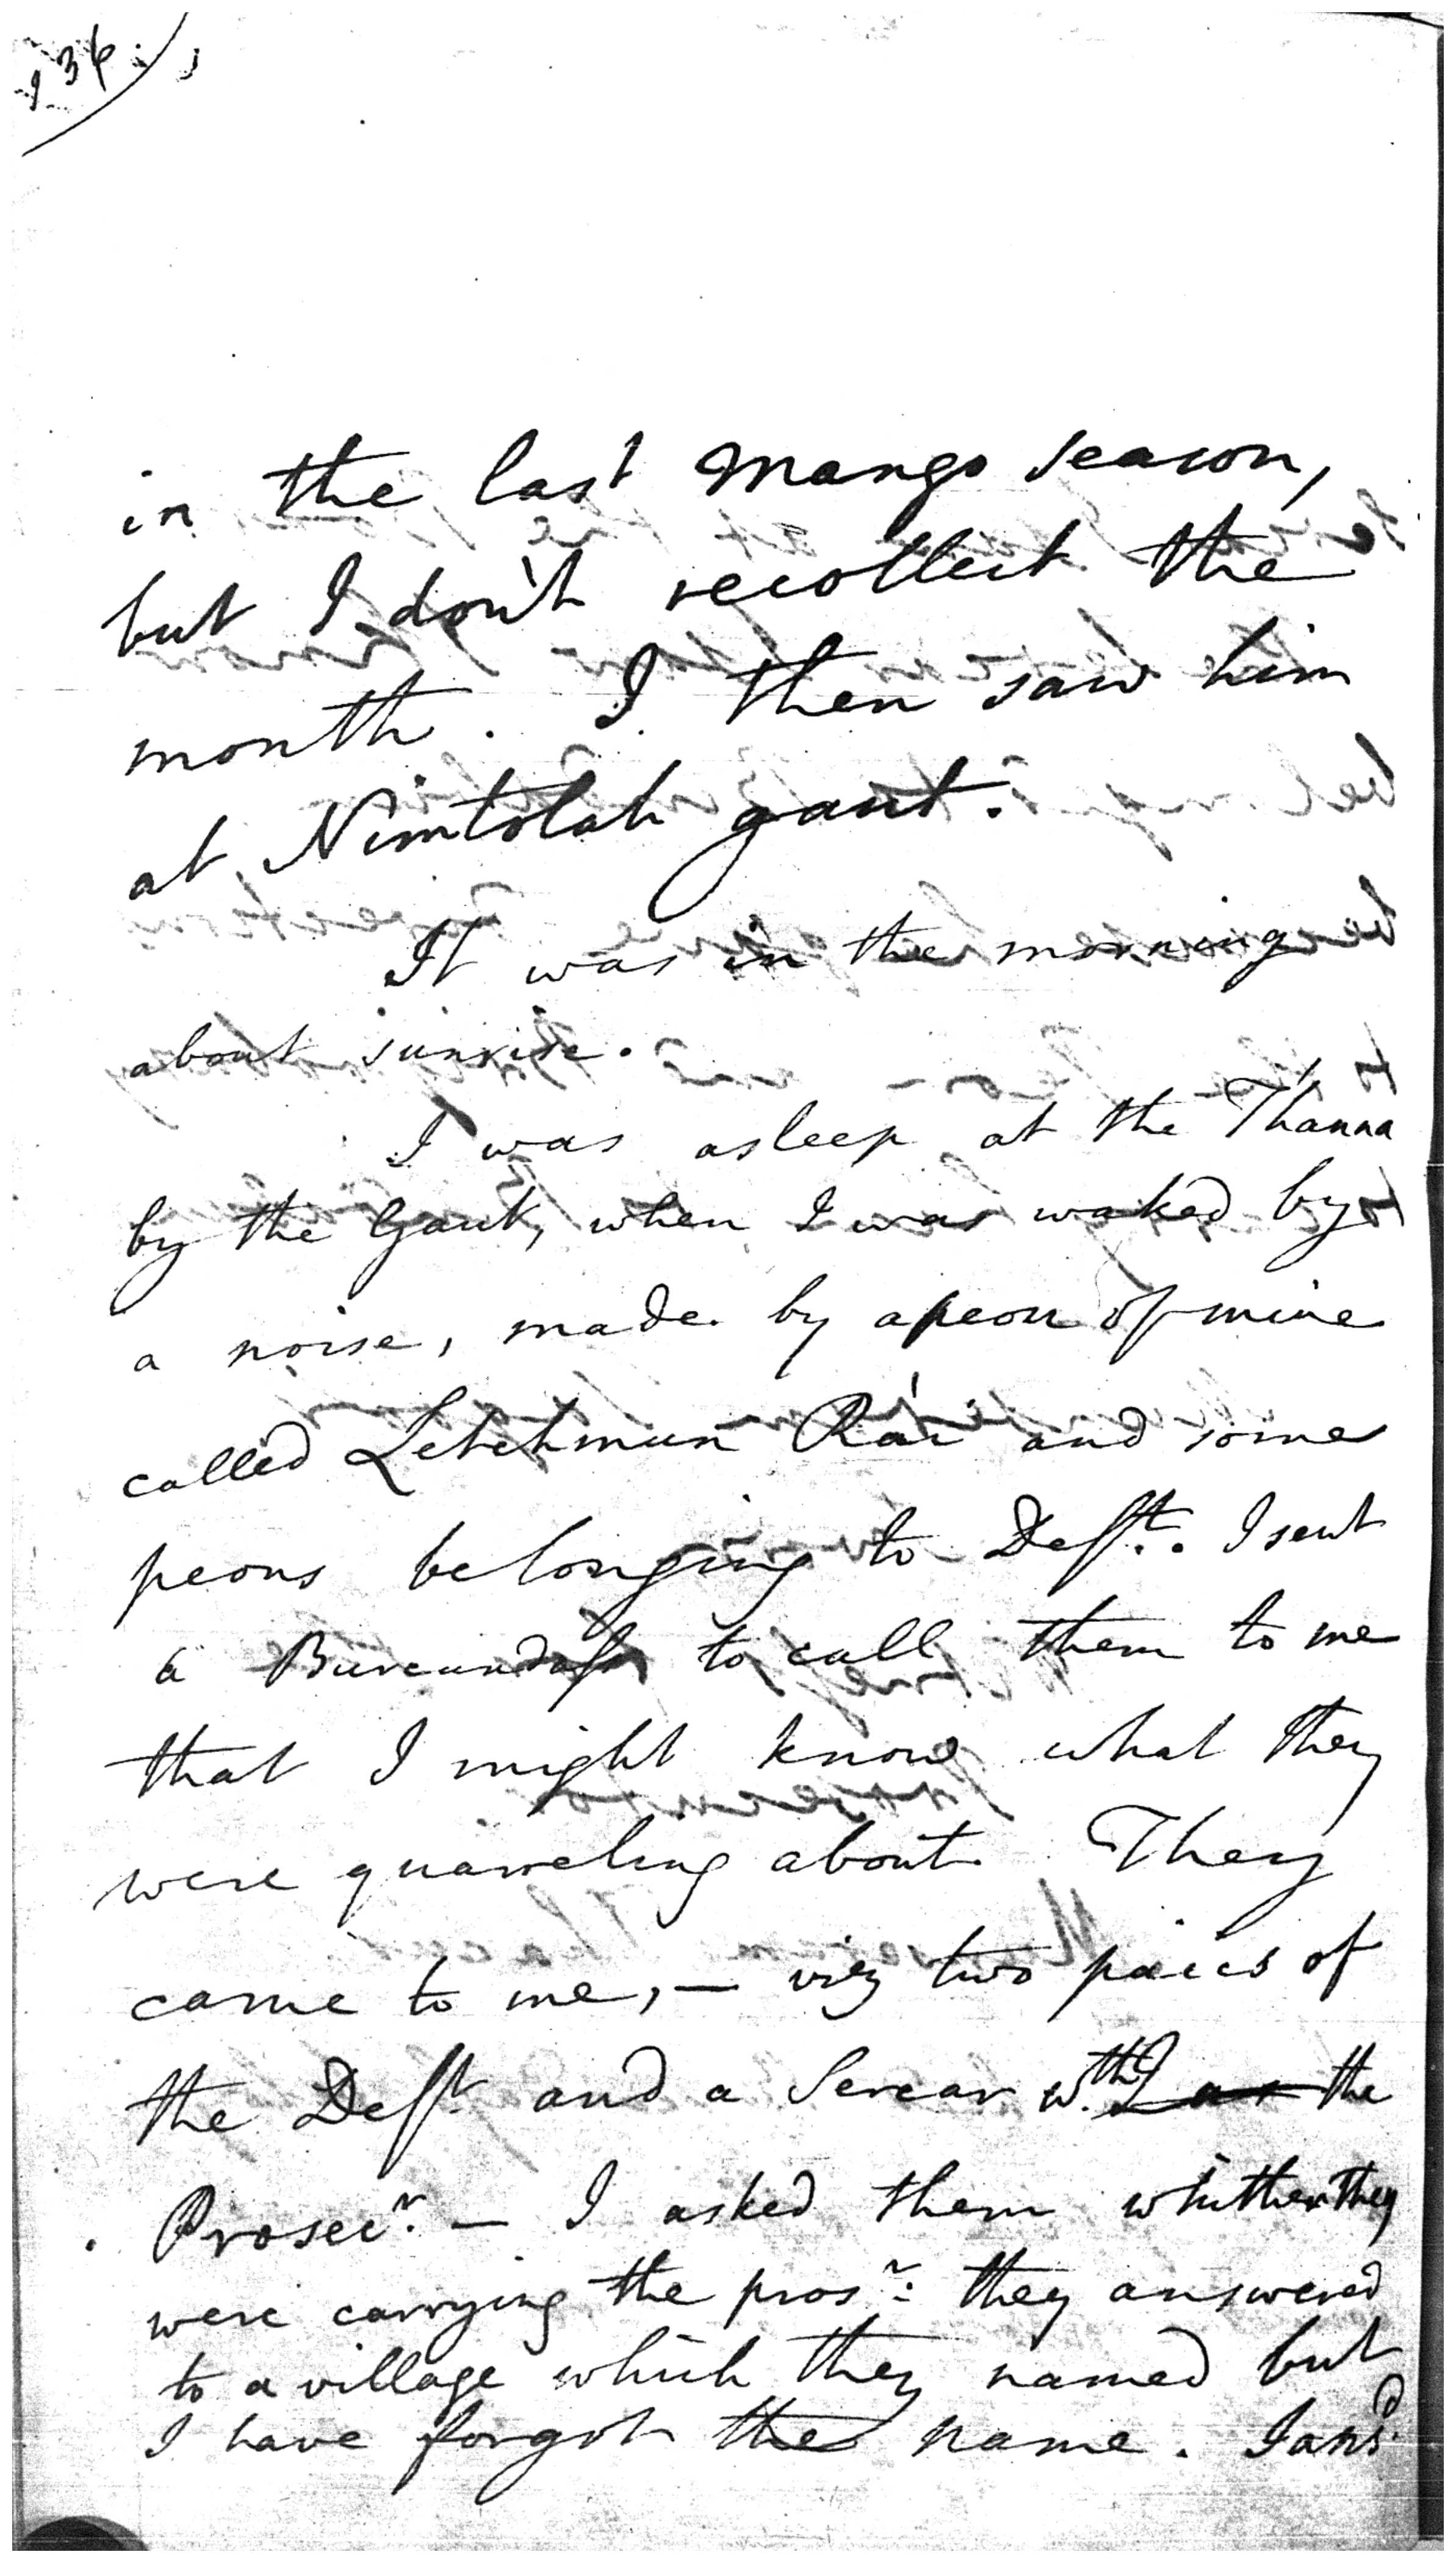 136
in the last Mango season,
but I don't recollect the
month. I then saw him
at Nimtolah gaut.
It was in the morning
about sunrise.
I was asleep at the Thanna
by the Gaut, when I was waked by
a noise, made by a peon of mine
called Letchmun Rái and some
peons belonging to Deft. I sent
a Burcundass to call them to me
that I might know what they
were quarreling about. They
came to me, — viz two paics of
the Deft and a Sercar wth the
Prosecr. — I asked them whither they
were carrying the prosr: they answered
to a village which they named but
I have forgot the name. I ansd.